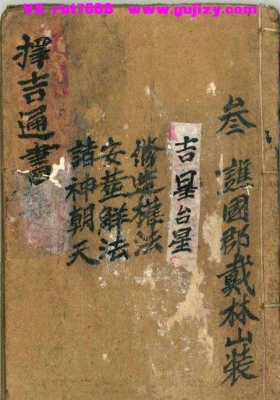 www.gujizy.com
叄 譙國郡戴林山裝
吉星台星
修造權法
安葬鮮法
諸神朝天
擇吉通書